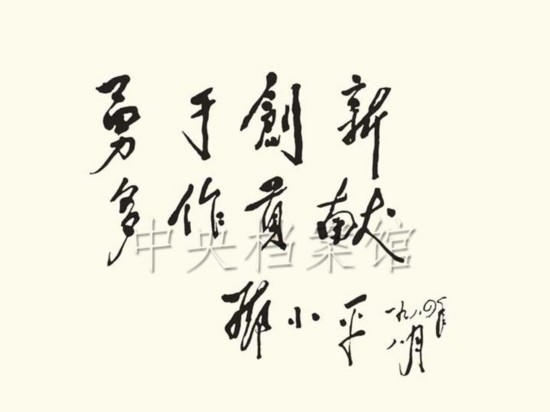 勇于創新
多作貢献
中央档案馆
鄧小平 一九八四年
八月